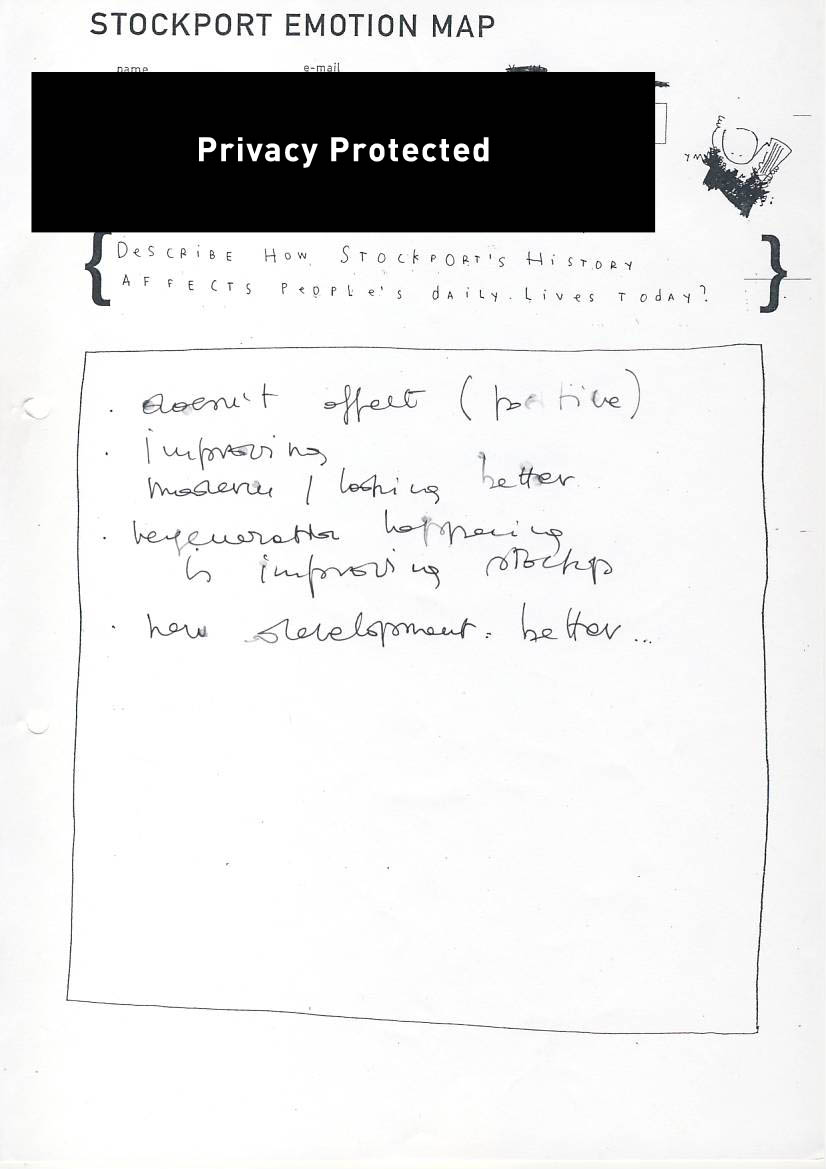 STOCKPORT EMOTION MAP
name e-mail
Privacy Protected
DeSCRiBE HoW STOCkPORT'S HiSTORY
AFFECTS PeOPLe's dAiLY. Lives TOdAY?
. doesn't affect (positive)
. improving
modern / looking better
. regeneration happening
is improving stockp
. new development. better...